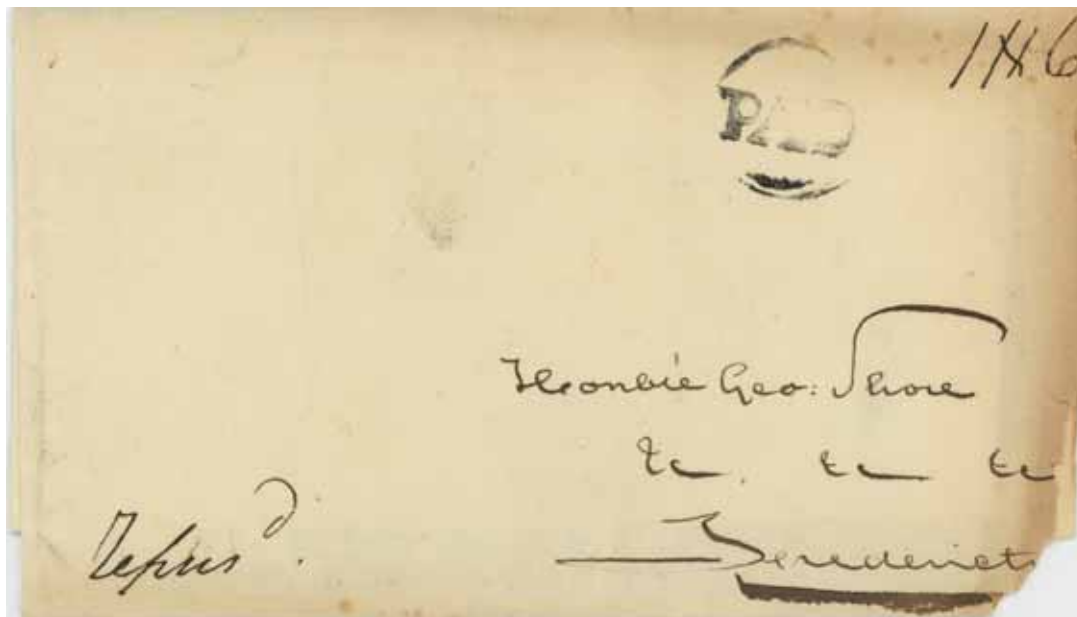 1N6
PAID
Honble Geo: Shore
&c &c &c
Fredericto
Refus^d.